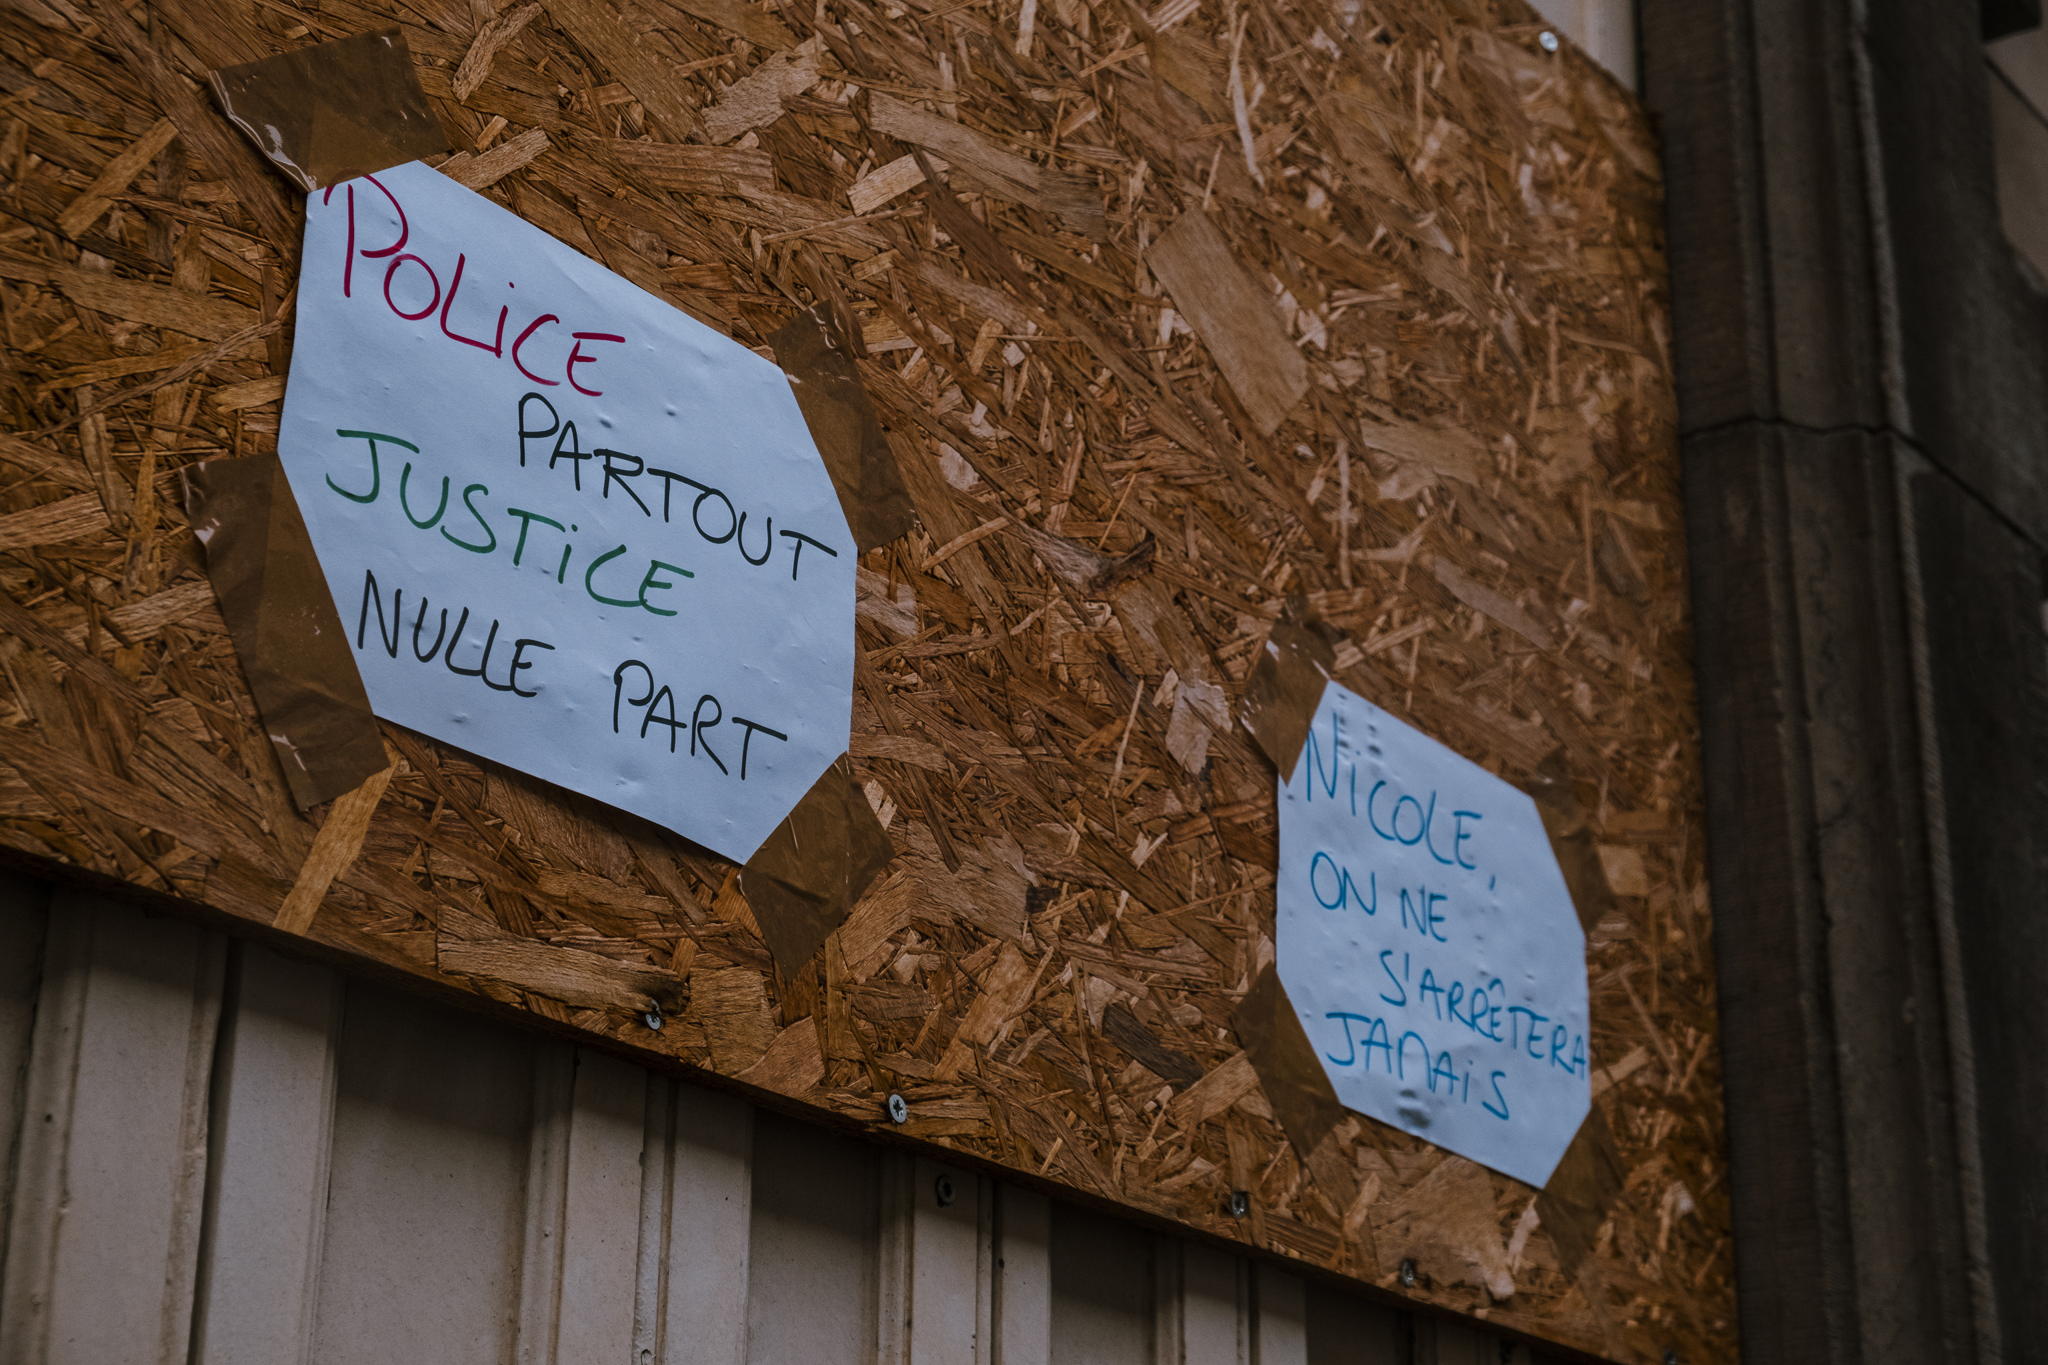 POLiCE
PARTOUT
JUSTiCE
NULLE PART
NiCOLE,
ON NE
S'ARRÊTERA
JAMAiS